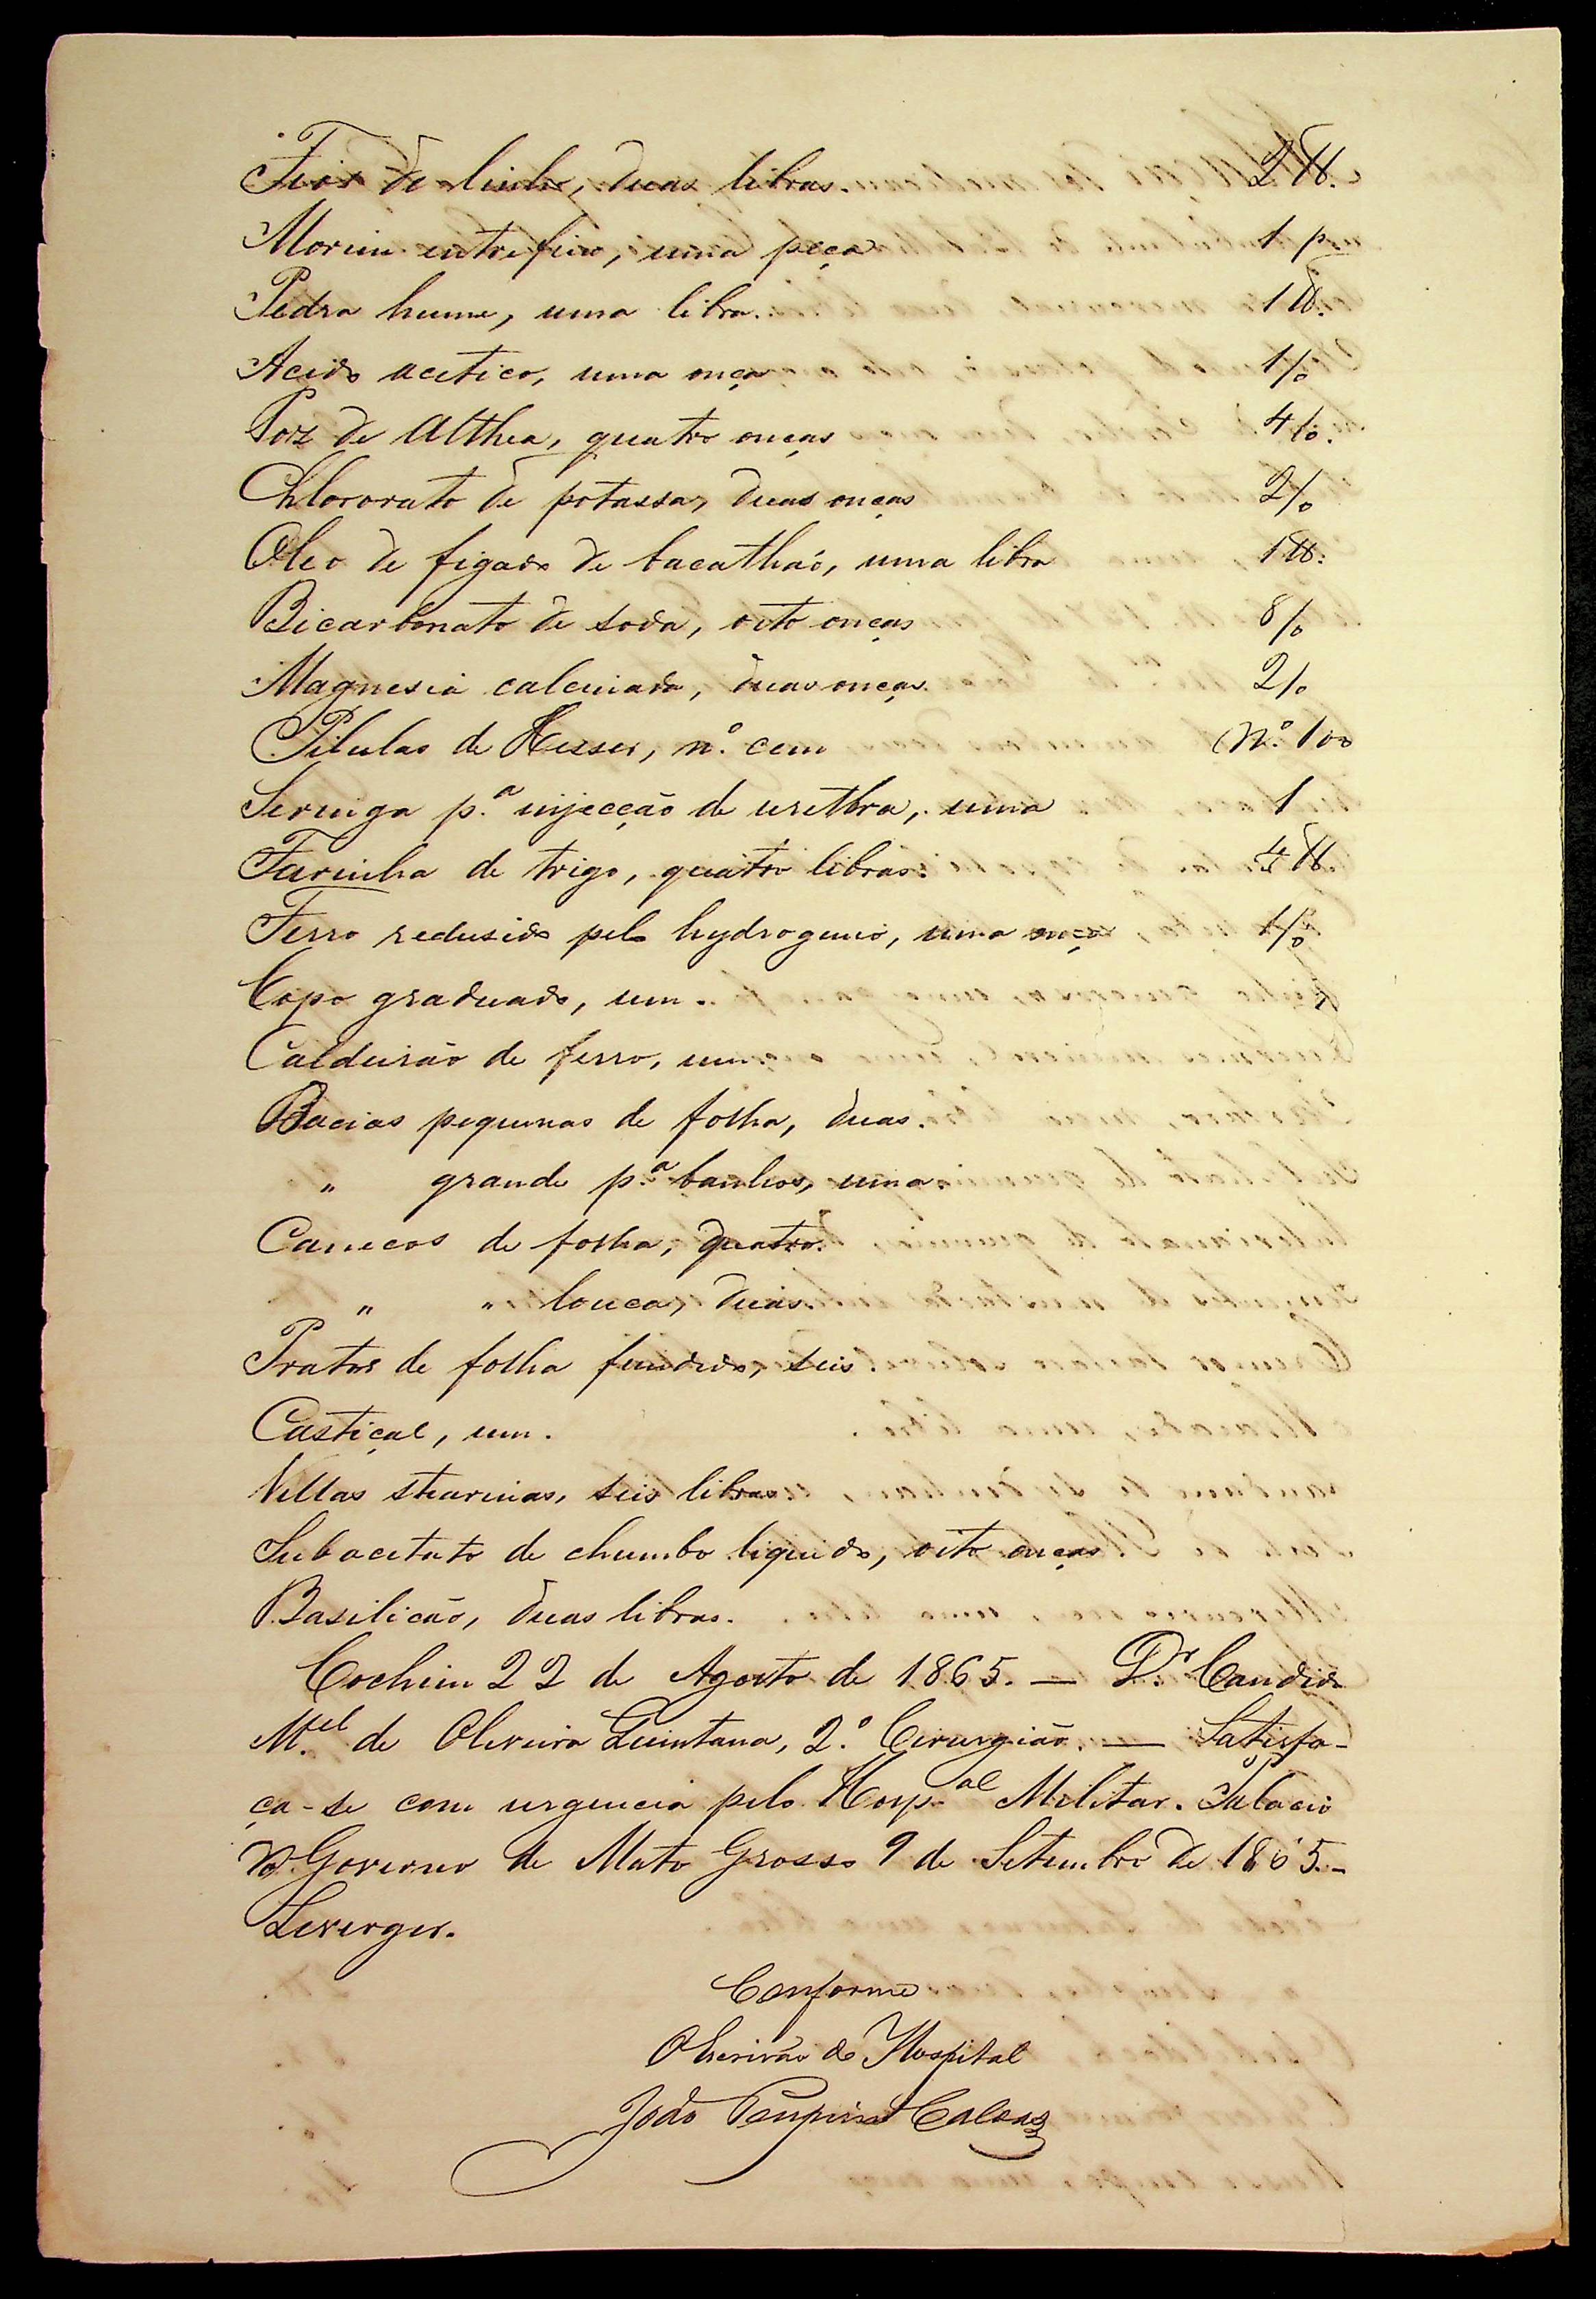 Fios de linho, duas libras. 2 ℔.
Morim entrefino, uma peça 1 pç
Pedra hume, uma libra. 1 ℔.
Acido acetico, uma onça 1/o
Poz de Althea, quatro onças 4/o.
Chlororato de potassa, duas onças 2/o
Oleo de figado de bacalháo, uma libra 1 ℔.
Bicarbonato de soda, oito onças 8/o
Magnesia calcinada, duas onças. 2/o
Pilulas de, nº. cem Nº. 100
Seringa p.ª injecção de urethra, uma 1
Farinha de trigo, quatro libras. 4 ℔.
Ferro redusido pelo hydrogenio, uma onça 1/o
Copo graduado, um. 1
Caldeirão de ferro, um.
Bacias pequenas de folha, duas.
" grande p.ª banhos, uma.
Canecos de folha, quatro.
" " louça, duas.
Pratos de folha fundido, seis.
Castiçal, um.
Vellas stearinas, seis libras
Subacetato de chumbo liquido, oito onças
Basilicão, duas libras.
Cochim 22 de Agosto de 1865. — Dr. Candido
M.el de Oliveira Quintana, 2.º Cirurgião. — Satisfa-
ça-se com urgencia pelo Hosp.al Militar. Palacio
do Governo de Mato Grosso 9 de Setembro de 1865.-
Leverger.
Conforme
O Escrivão do Hospital
João Caldas